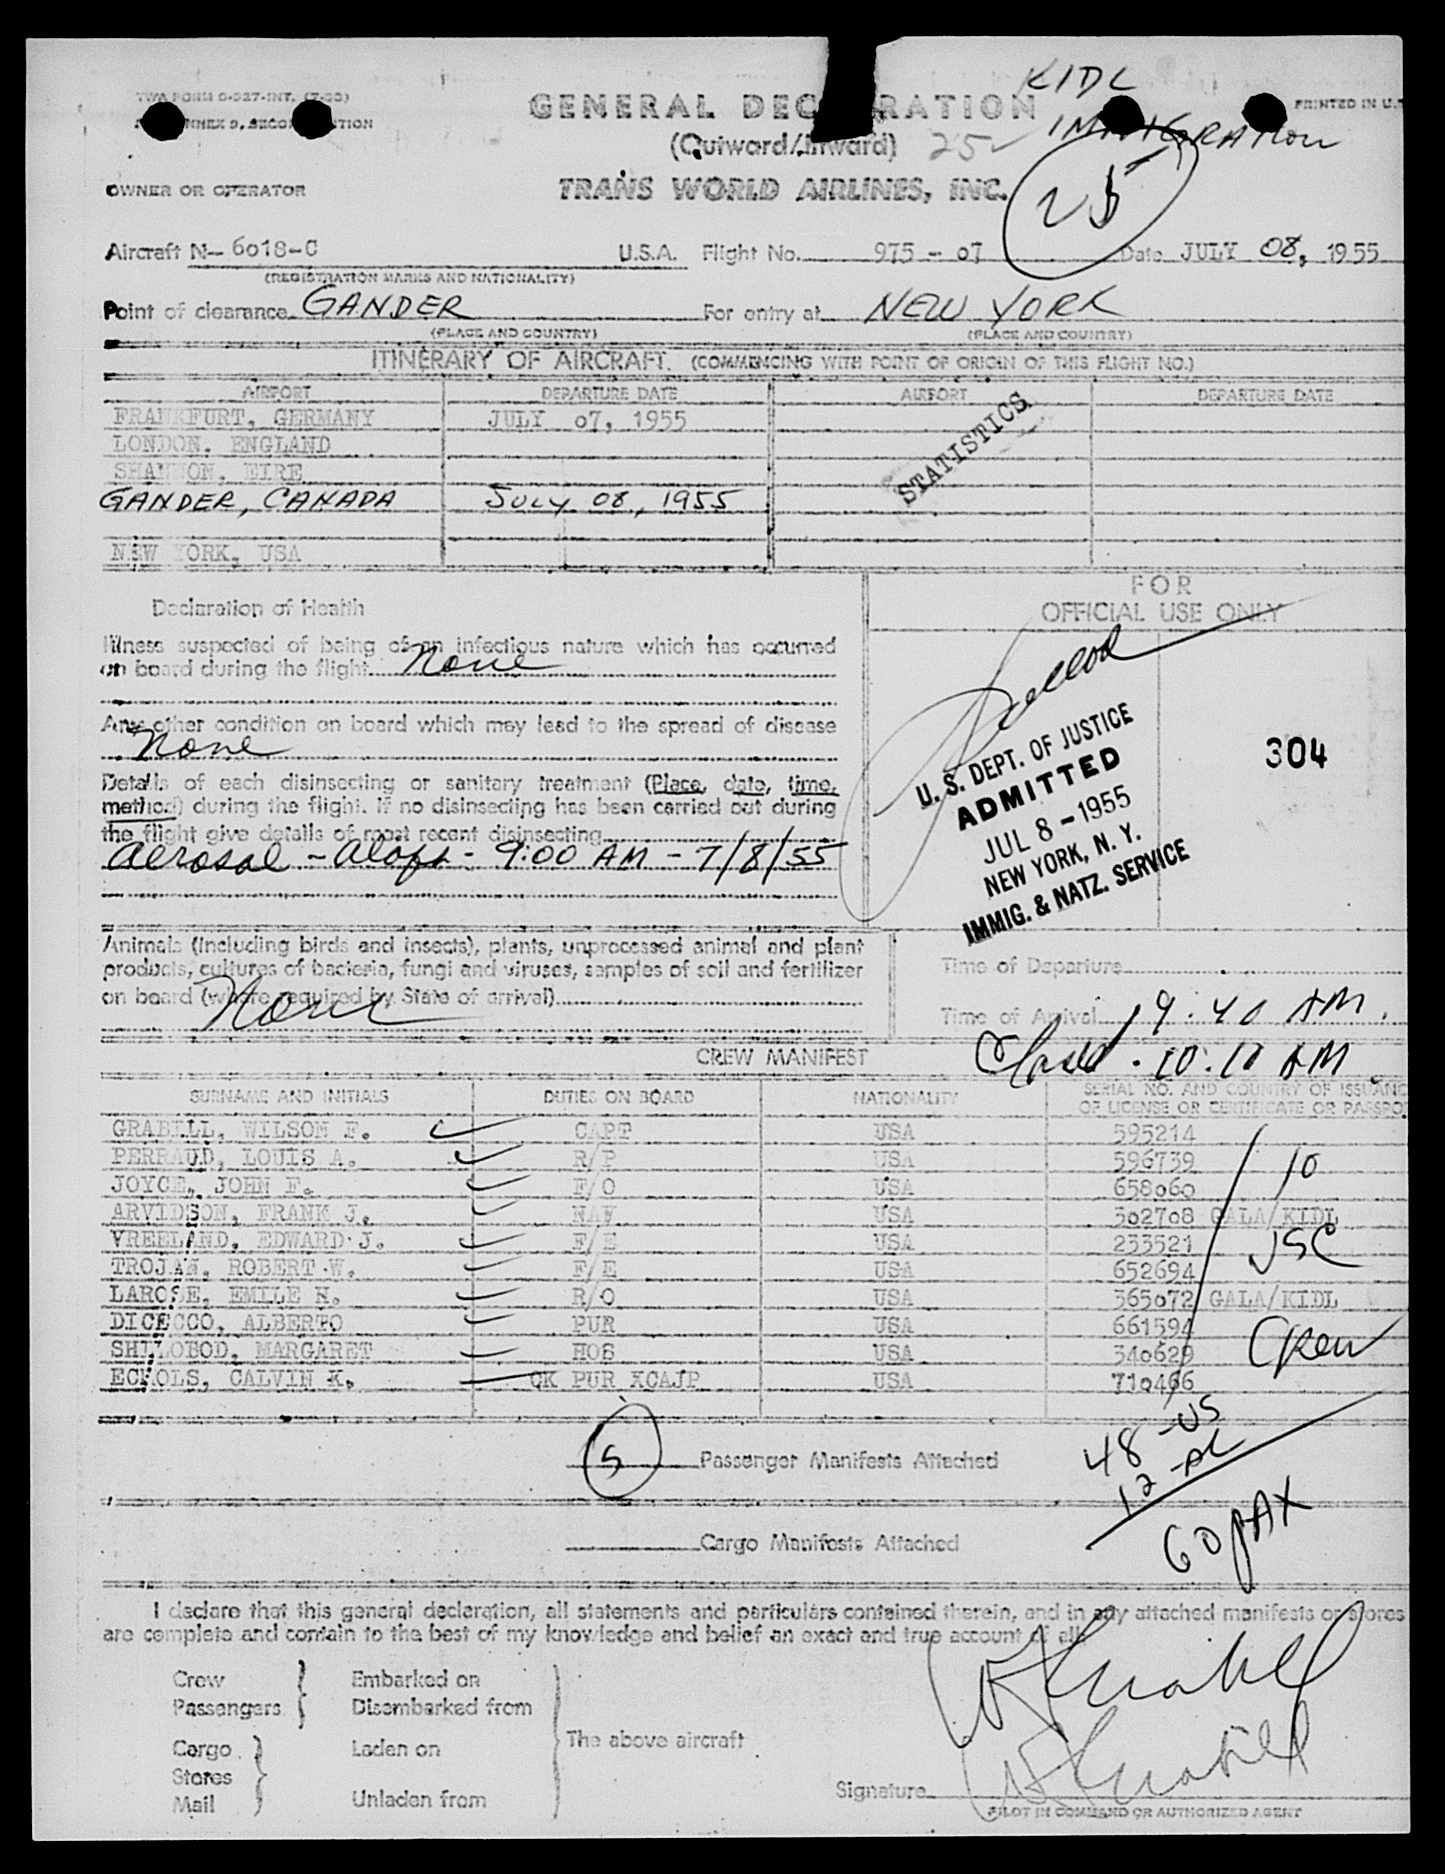 TWA FORM 0-927-INT.
KIDL
PRINTED IN U.S
GENERAL DEC RATION
IMMIGRATION
(Outward/Inward) 25
25
OWNER OR OPERATOR
TRANS WORLD AIRLINES, INC.
Aircraft N- 6018-C U.S.A. Flight No. 975 - 07 Date JULY 08, 1955
(REGISTRATION MARKS AND NATIONALITY)
Point of clearance GANDER For entry at NEW YORK
(PLACE AND COUNTRY) (PLACE AND COUNTRY)
ITINERARY OF AIRCRAFT. (COMMENCING WITH POINT OF ORIGIN OF THIS FLIGHT NO.)
AIRPORT DEPARTURE DATE AIRPORT DEPARTURE DATE
FRANKFURT, GERMANY JULY 07, 1955
LONDON, ENGLAND
SHANNON, EIRE
GANDER, CANADA JULY 08, 1955
NEW YORK, USA
STATISTICS
Declaration of Health
Illness suspected of being of an infectious nature which has occurred
on board during the flight None
Any other condition on board which may lead to the spread of disease
None
Details of each disinsecting or sanitary treatment (Place, date, time,
method) during the flight. If no disinsecting has been carried out during
the flight give details of most recent disinsecting
Aerosol - Aloft - 9:00 AM - 7/8/55
FOR
OFFICIAL USE ONLY
U. S. DEPT. OF JUSTICE
ADMITTED
JUL 8 - 1955
NEW YORK, N. Y.
IMMIG. & NATZ. SERVICE
304
Animals (including birds and insects), plants, unprocessed animal and plant
products, cultures of bacteria, fungi and viruses, samples of soil and fertilizer
on board (where required by State of arrival)
None
Time of Departure
Time of Arrival 9.40 AM.
Closed. 10:10 AM
CREW MANIFEST
SURNAME AND INITIALS DUTIES ON BOARD NATIONALITY SERIAL NO. AND COUNTRY OF ISSUANC
OF LICENSE OR CERTIFICATE OR PASSPO
GRABILL, WILSON F. CAPT USA 595214
PERRAUD, LOUIS A. R/P USA 596739
JOYCE, JOHN F. F/O USA 658060
ARVIDSON, FRANK J. NAV USA 302708 GALA/KIDL
VREELAND, EDWARD J. F/E USA 233521
TROJAN, ROBERT W. F/E USA 652694
LAROSE, EMILE N. R/O USA 365072 GALA/KIDL
DICECCO, ALBERTO PUR USA 661594
SHILOBOD, MARGARET HOS USA 340629
ECHOLS, CALVIN K. CK PUR XCAJP USA 710466
10
USC
Crew
5 Passenger Manifests Attached
48 - US
12 - AL
60 PAX
Cargo Manifests Attached
I declare that this general declaration, all statements and particulars contained therein, and in any attached manifests or stores
are complete and contain to the best of my knowledge and belief an exact and true account of all
Crew Embarked on
Passengers Disembarked from
Cargo Laden on
Stores
Mail Unladen from
The above aircraft
Signature
PILOT IN COMMAND OR AUTHORIZED AGENT